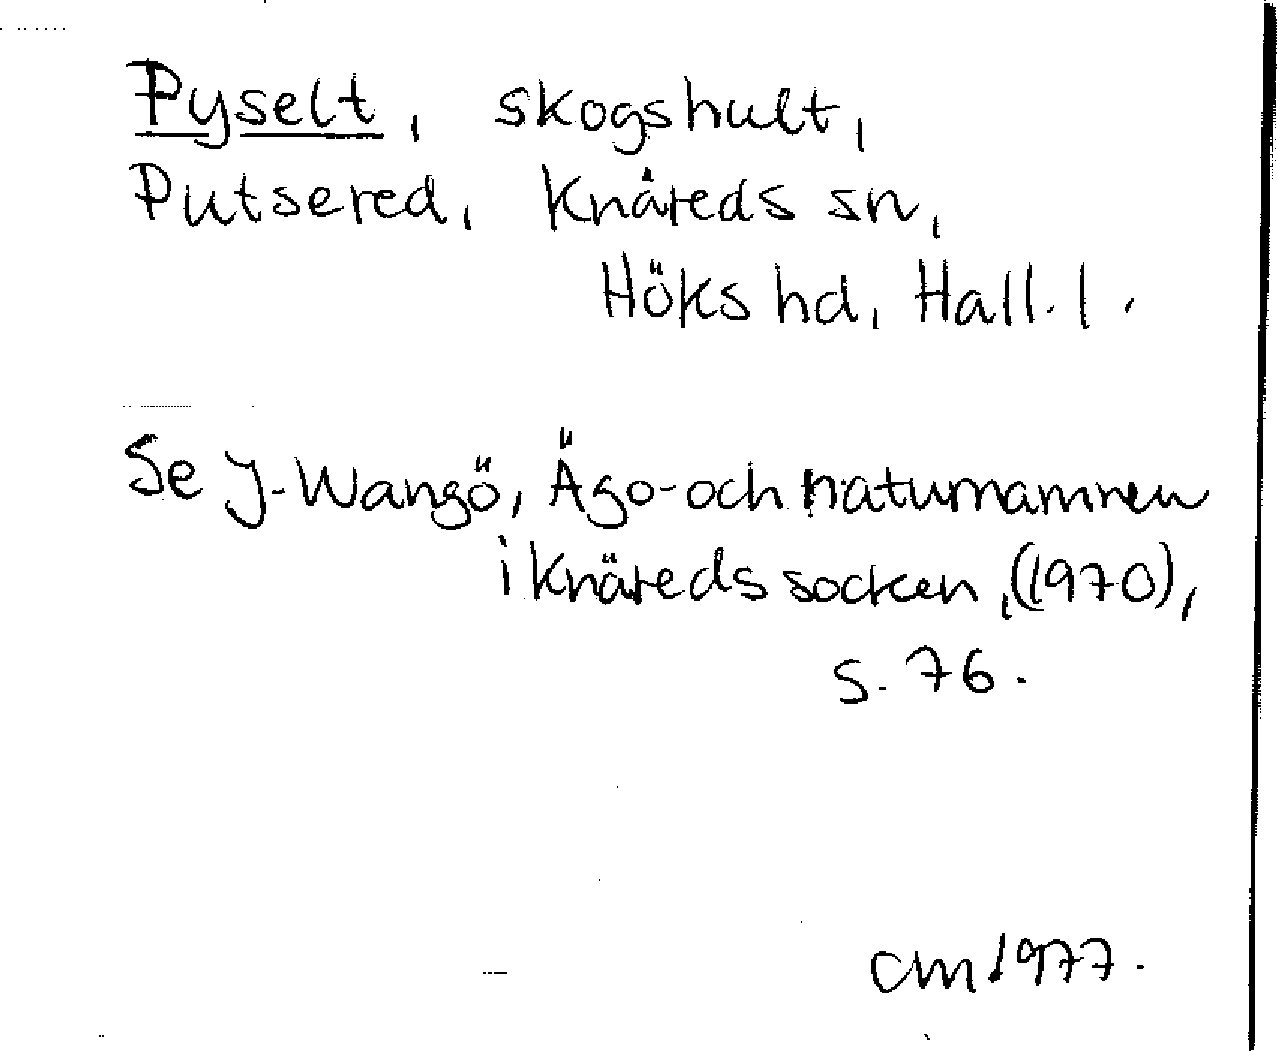 Pyselt, skogshult,
Putsered, Knäreds sn,
Höks hd, Hall. l.
Se J. Wangö, Ägo- och naturnamnen
i Knäreds socken, (1970),
s. 76.
CM 1977.